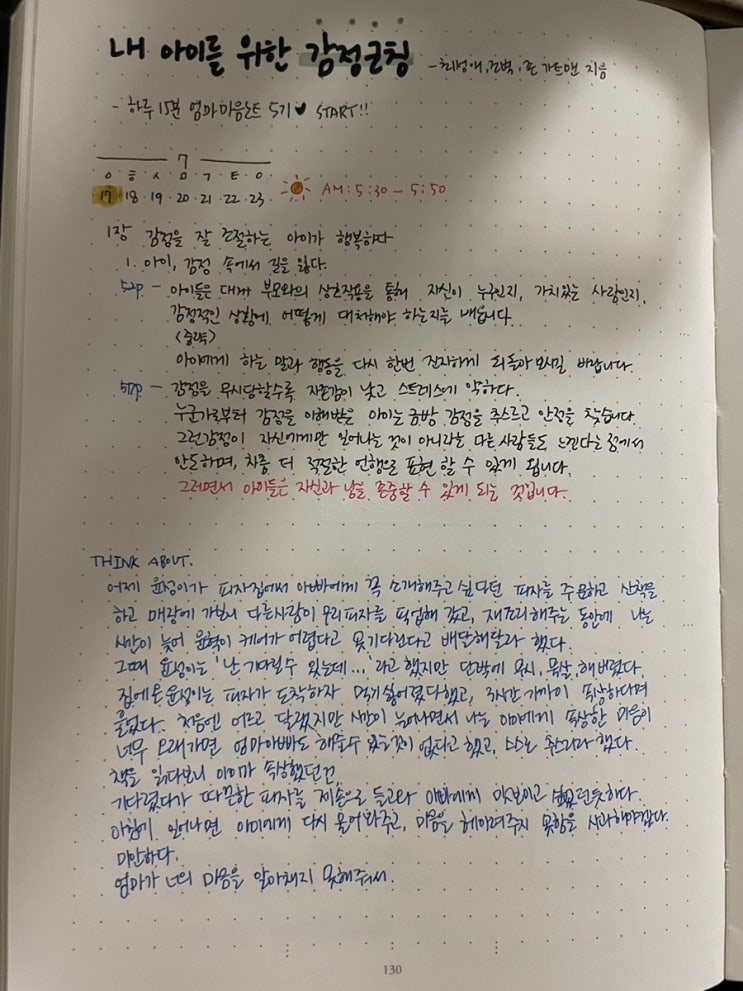 내 아이를 위한 감정코칭 - 최성애, 조벽, 존 가트맨 지음
- 하루 15분 엄마마음노트 5기♥ START!!
7
일 월 화 수 목 금 토
17 18 19 20 21 22 23 AM: 5:30 - 5:50
1장 감정을 잘 조절하는 아이가 행복하다
1. 아이, 감정 속에서 길을 잃다.
52p - 아이들은 대개 부모와의 상호작용을 통해 자신이 누구인지, 가치있는 사람인지,
감정적인 상황에 어떻게 대처해야 하는지를 배웁니다.
<중략>
아이에게 하는 말과 행동을 다시 한번 진지하게 되돌아 보시길 바랍니다.
57p - 감정을 무시당할수록 자존감이 낮고 스트레스에 약하다.
누군가로부터 감정을 이해받은 아이는 금방 감정을 추스르고 안정을 찾습니다.
그런감정이 자신에게만 일어나는 것이 아니라는 다른 사람들도 느낀다는 점에서
안도하며, 차츰 더 적절한 언행으로 표현 할 수 있게 됩니다.
그러면서 아이들은 자신과 남을 존중할 수 있게 되는 것입니다.
THINK ABOUT.
어제 윤성이가 피자집에서 아빠에게 꼭 소개해주고 싶다던 피자를 주문하고 산책을
하고 매장에 가보니 다른사람이 우리피자를 픽업해 갔고, 재조리해주는 동안에 나는
시간이 늦어 윤혁이 케어가 어렵다고 못기다린다고 배달해달라 했다.
그때 윤성이는 '난 기다릴수 있는데...' 라고 했지만 단박에 무시, 묵살, 해버렸다.
집에온 윤성이는 피자가 도착하자 먹기싫어졌다했고, 3시간 가까이 속상하다며
울었다. 처음엔 어르고 달랬지만 시간이 늦어지면서 나는 아이에게 속상한 마음이
너무 오래가면 엄마아빠도 해줄수 있는것이 없다고 했고, 스스로 추스리라 했다.
책을 읽다보니 아이가 속상했던건,
기다렸다가 따끈한 피자를 제손으로 들고와 아빠에게 맛보이고 싶었던듯하다.
아침에 일어나면 아이에게 다시 물어봐주고, 마음을 헤아려주지 못함을 사과해야겠다.
미안하다.
엄마가 너의 마음을 알아채지 못해줘서.
130